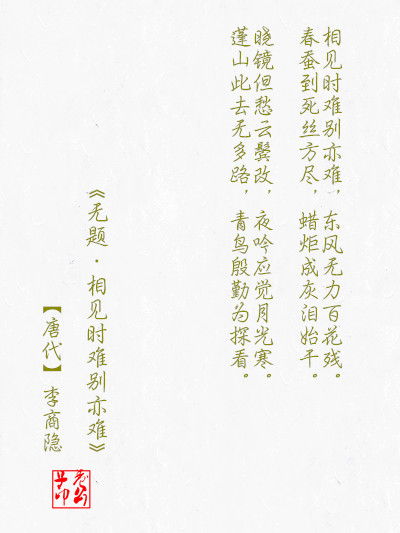 相见时难别亦难，东风无力百花残。
春蚕到死丝方尽，蜡炬成灰泪始干。
晓镜但愁云鬓改，夜吟应觉月光寒。
蓬山此去无多路，青鸟殷勤为探看。
《无题·相见时难别亦难》
【唐代】李商隐